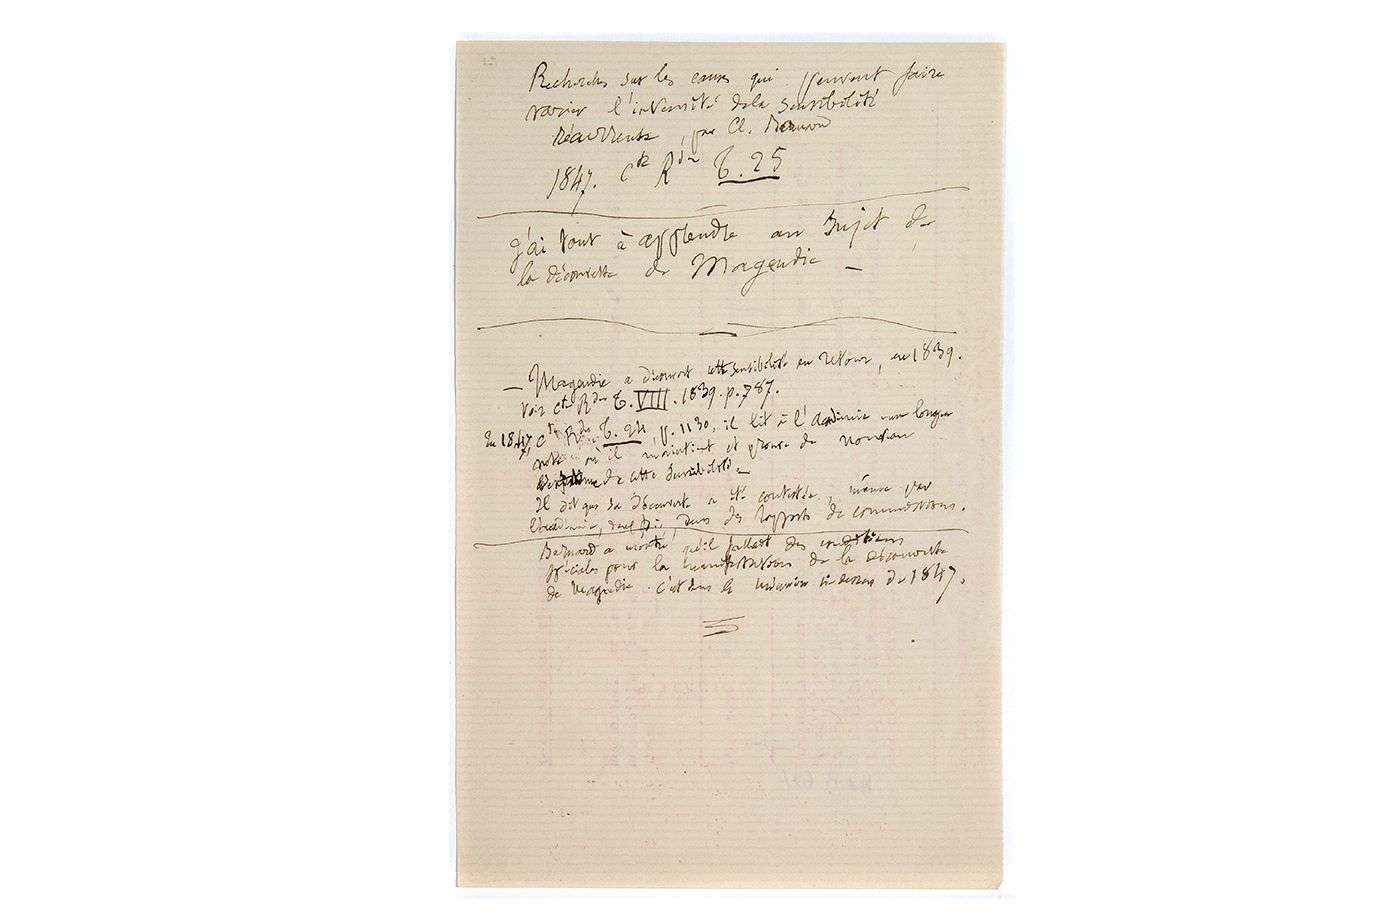 Recherches sur les causes qui peuvent faire
varier l'intensité de la sensibilité
récurrente, par Cl. Bernard
1847. Cte Rdu T. 25
J'ai tout à apprendre au sujet de
la découverte de Magendie —
— Magendie a découvert cette sensibilité en retour, en 1839.
Voir Ctes Rdus T. VIII. 1839. p. 787.
En 1847, Ctes Rdus T. 24, p. 1130, il lit à l'Académie une longue
note où il maintient et prouve de nouveau
de cette sensibilité —
Il dit que sa découverte a été contestée, même par
l'Académie, dans des rapports de commissions.
Bernard a montré qu'il fallait des conditions
spéciales pour la manifestation de la découverte
de Magendie. C'est dans le mémoire ci-dessus de 1847.